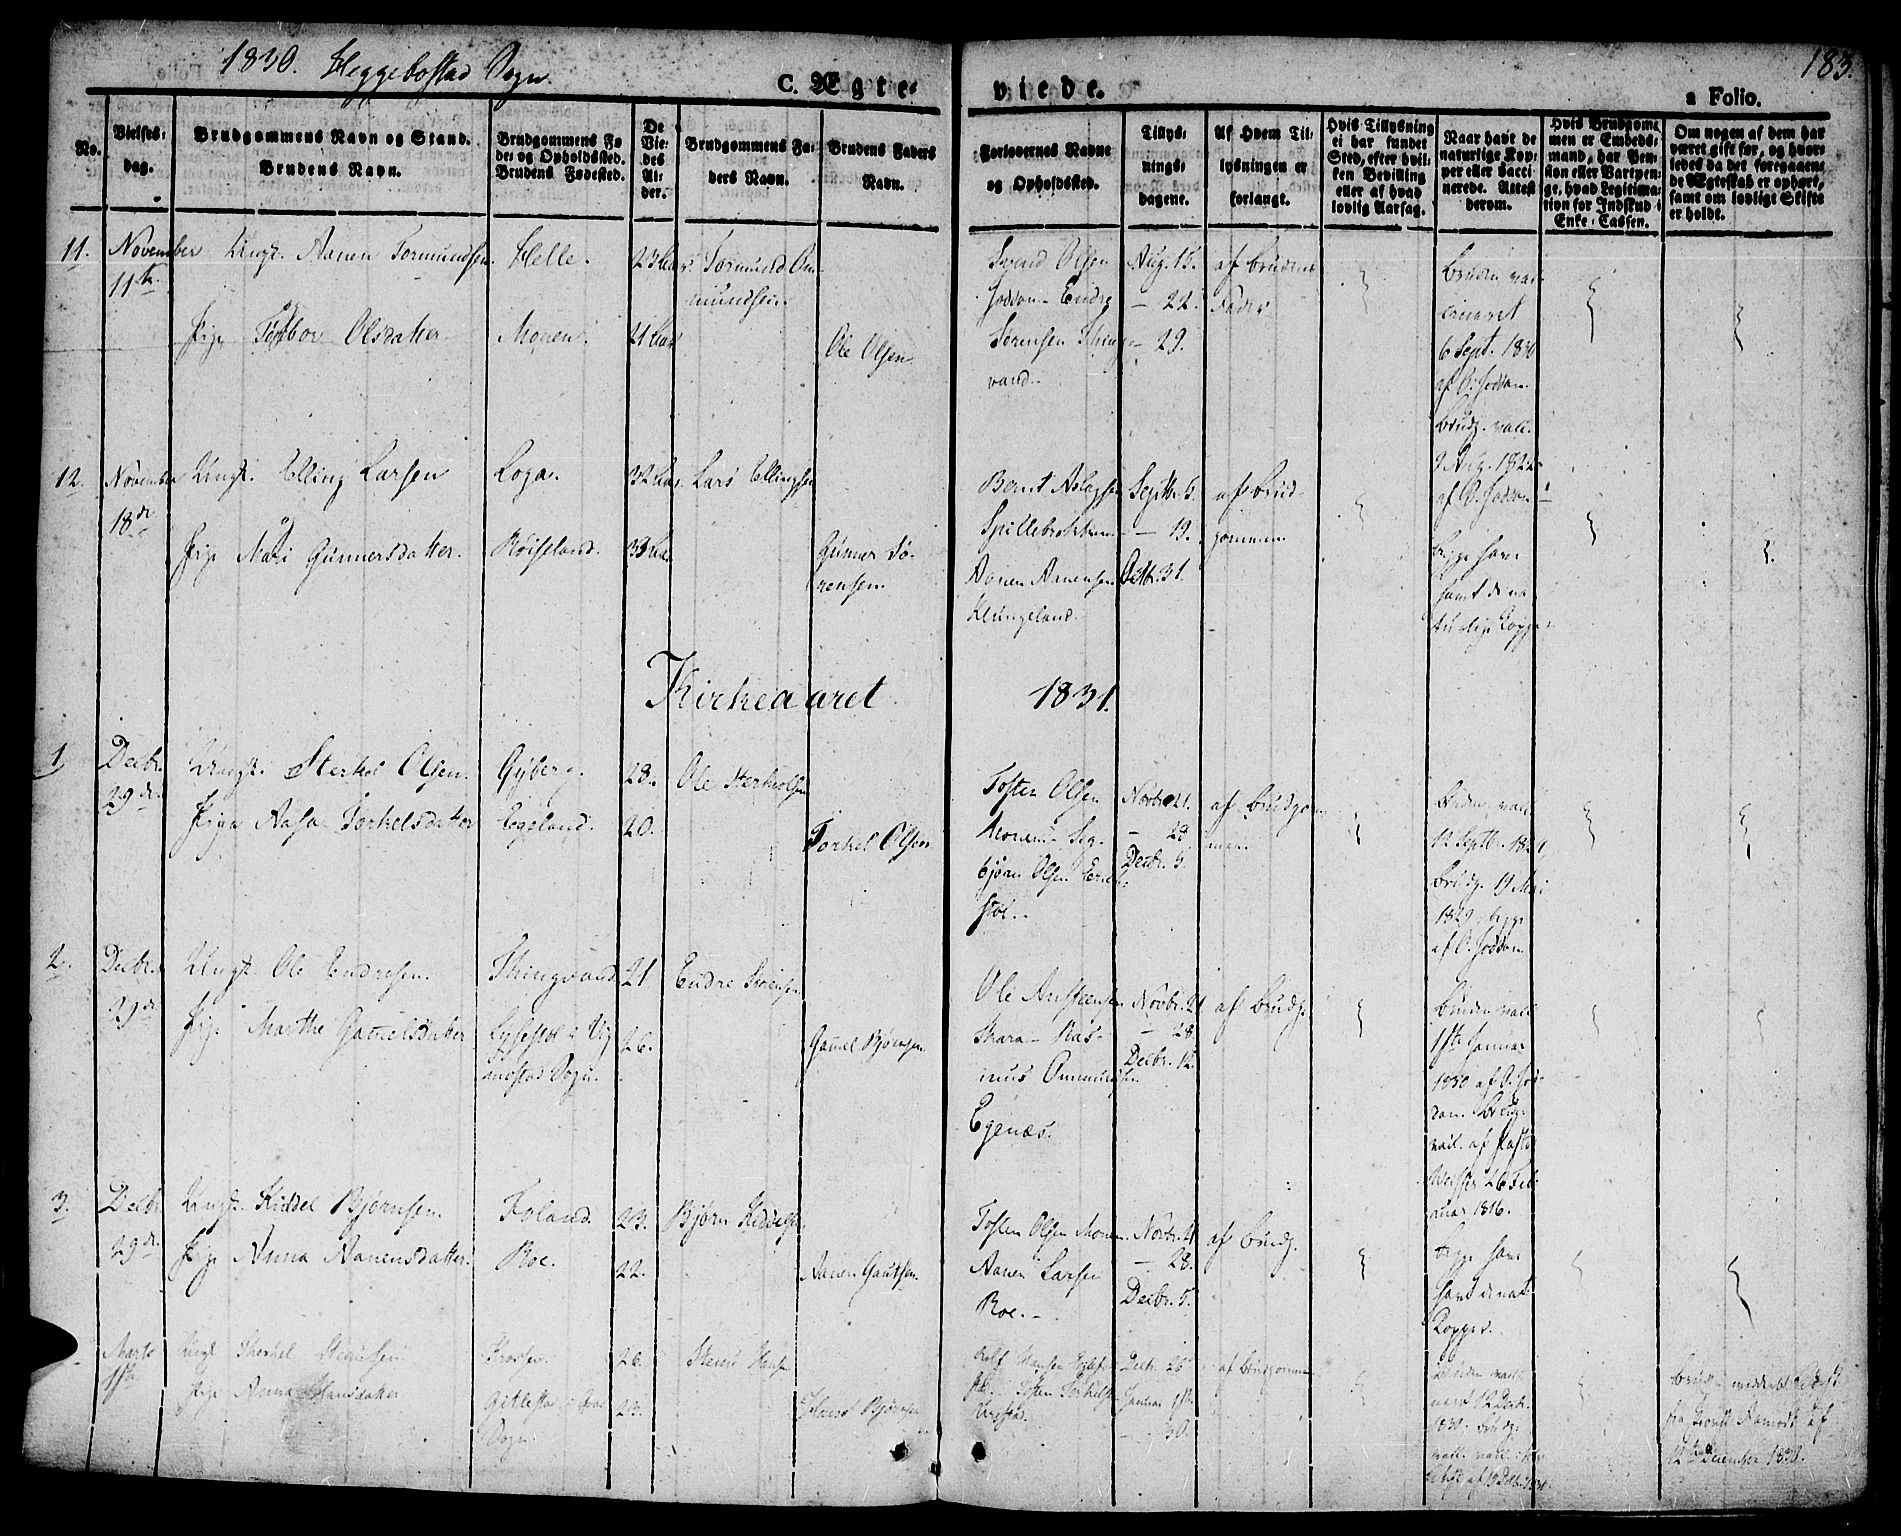 1830. Heggebostad Sogn.
183.
C. Ægte-
viede.
a Folio.
No.
Vielses-
dag.
Brudgommens Navn og Stand.
Brudens Navn.
Brudgommens Fø
de- og Opholdssted.
Brudens Fødested.
De
Vie-
des
Al-
der.
Brudgommens Fa-
ders Navn.
Brudens Faders
Navn.
Forlovernes Navne
og Opholdssted.
Tillys-
nings-
dagene.
Af Hvem Til-
lysningen er
forlangt.
Hvis Tillysning
ei har fundet
Sted, efter hvil-
ken Bevilling
eller af hvad
lovlig Aarsag.
Naar have de
naturlige Kop-
per eller Vacci-
nerede. Attest
derom.
Hvis Brudgom-
men er Embeds-
mand, har Pen-
sion eller Vartpen-
ge, hvad Legitima-
tion for Indskud i
Enke-Cassen.
Om nogen af dem har
været gift før, og hvor-
ledes da det foregaaen-
de Ægteskab er ophørt,
samt om lovligt Skifte
er holdt.
11.
November
11te
Ungk. Aanen Tormundsen.
Pige Torbor Olsdatter
Helle.
Monen.
23 Aar
21 Aar
Tormund Om-
mundsen.
Ole Olsen
Svend Olsen
Joddan - Endre
Sørensen Sking-
vand.
Aug. 15.
- 22.
- 29.
af Brudens
Fader
Bruden vac-
cineret
6 Sept. 1830
af O. Joddan.
Brudg. vacc.
9 Aug. 1822
af O. Joddan
12.
November
18de
Ungk. Elling Larsen
Pige Mari Gunnersdatter.
Loga.
Røiseland.
32 Aar
33 Aar
Lars Ellingsen
Gunner Sø-
rensen.
Bernt Aslagsen
Spillebrokken
Aanen Aanensen
Klungeland.
Septbr. 5.
- 19.
Octbr. 31.
af Brud-
gommen
Begge have
havt de na-
turlige Kopper
Kirkeaaret 1831.
1
Decbr.
29de
Ungk. Sterkel Olsen.
Pige Aasa Torkelsdatter
Gyberg.
Egeland.
28.
20.
Ole Sterkelsen
Torkel Olsen
Tosten Olsen
Monen - Seg-
bjørn Olsen Erik-
støl.
Novbr. 21.
- 28
Decbr. 5.
af Brudgom-
men.
Bruden vacc.
12 Septbr. 1821,
Brudg. 19 Mai
1829, begge
af O. Joddan
2.
Decbr.
29de
Ungk. Ole Endresen.
Pige Marthe Gamelsdatter
Skingvand
Lysestøl i Vig-
mostad Sogn.
21
26.
Endre Sørensen
Gamel Bjørnsen
Ole Ansteensen
Skara - Ras-
mus Ommundsen
Egenæs.
Novbr. 21
- 28
Decbr. 12.
af Brudg.
Bruden vacc.
1ste Januar
1830 af O. Jod-
dan. Brudg.
vacc. af Pastor
26 Feb-
ruar 1816.
3.
Decbr.
29de
Ungk. Kiddel Bjørnsen.
Pige Anna Aanensdatter.
Foland.
Roe.
23.
22.
Bjørn Kiddelsen
Aanen Gautsen.
Tosten Olsen Monen.
Aanen Larsen
Roe.
Novbr. 21
- 28.
Decbr. 5.
af Brudg.
Begge have
havt de nat.
Kopper.
Marts
1ste
Ungk.
Pige Anna Hansdatter
Sogn.
26.
23.
Hans Bjørnsen
Tosten Torkelsen
Decbr. 26
Januar
30.
af Brudgommen
Bruden vacc.
12 Decbr.
1830. Brudg.
12te December 1830.